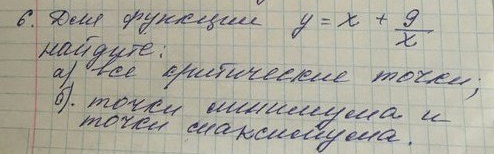 6. Для функции y = x + 9/x
найдите:
а) все критические точки;
б). точки минимума и
точки максимума.